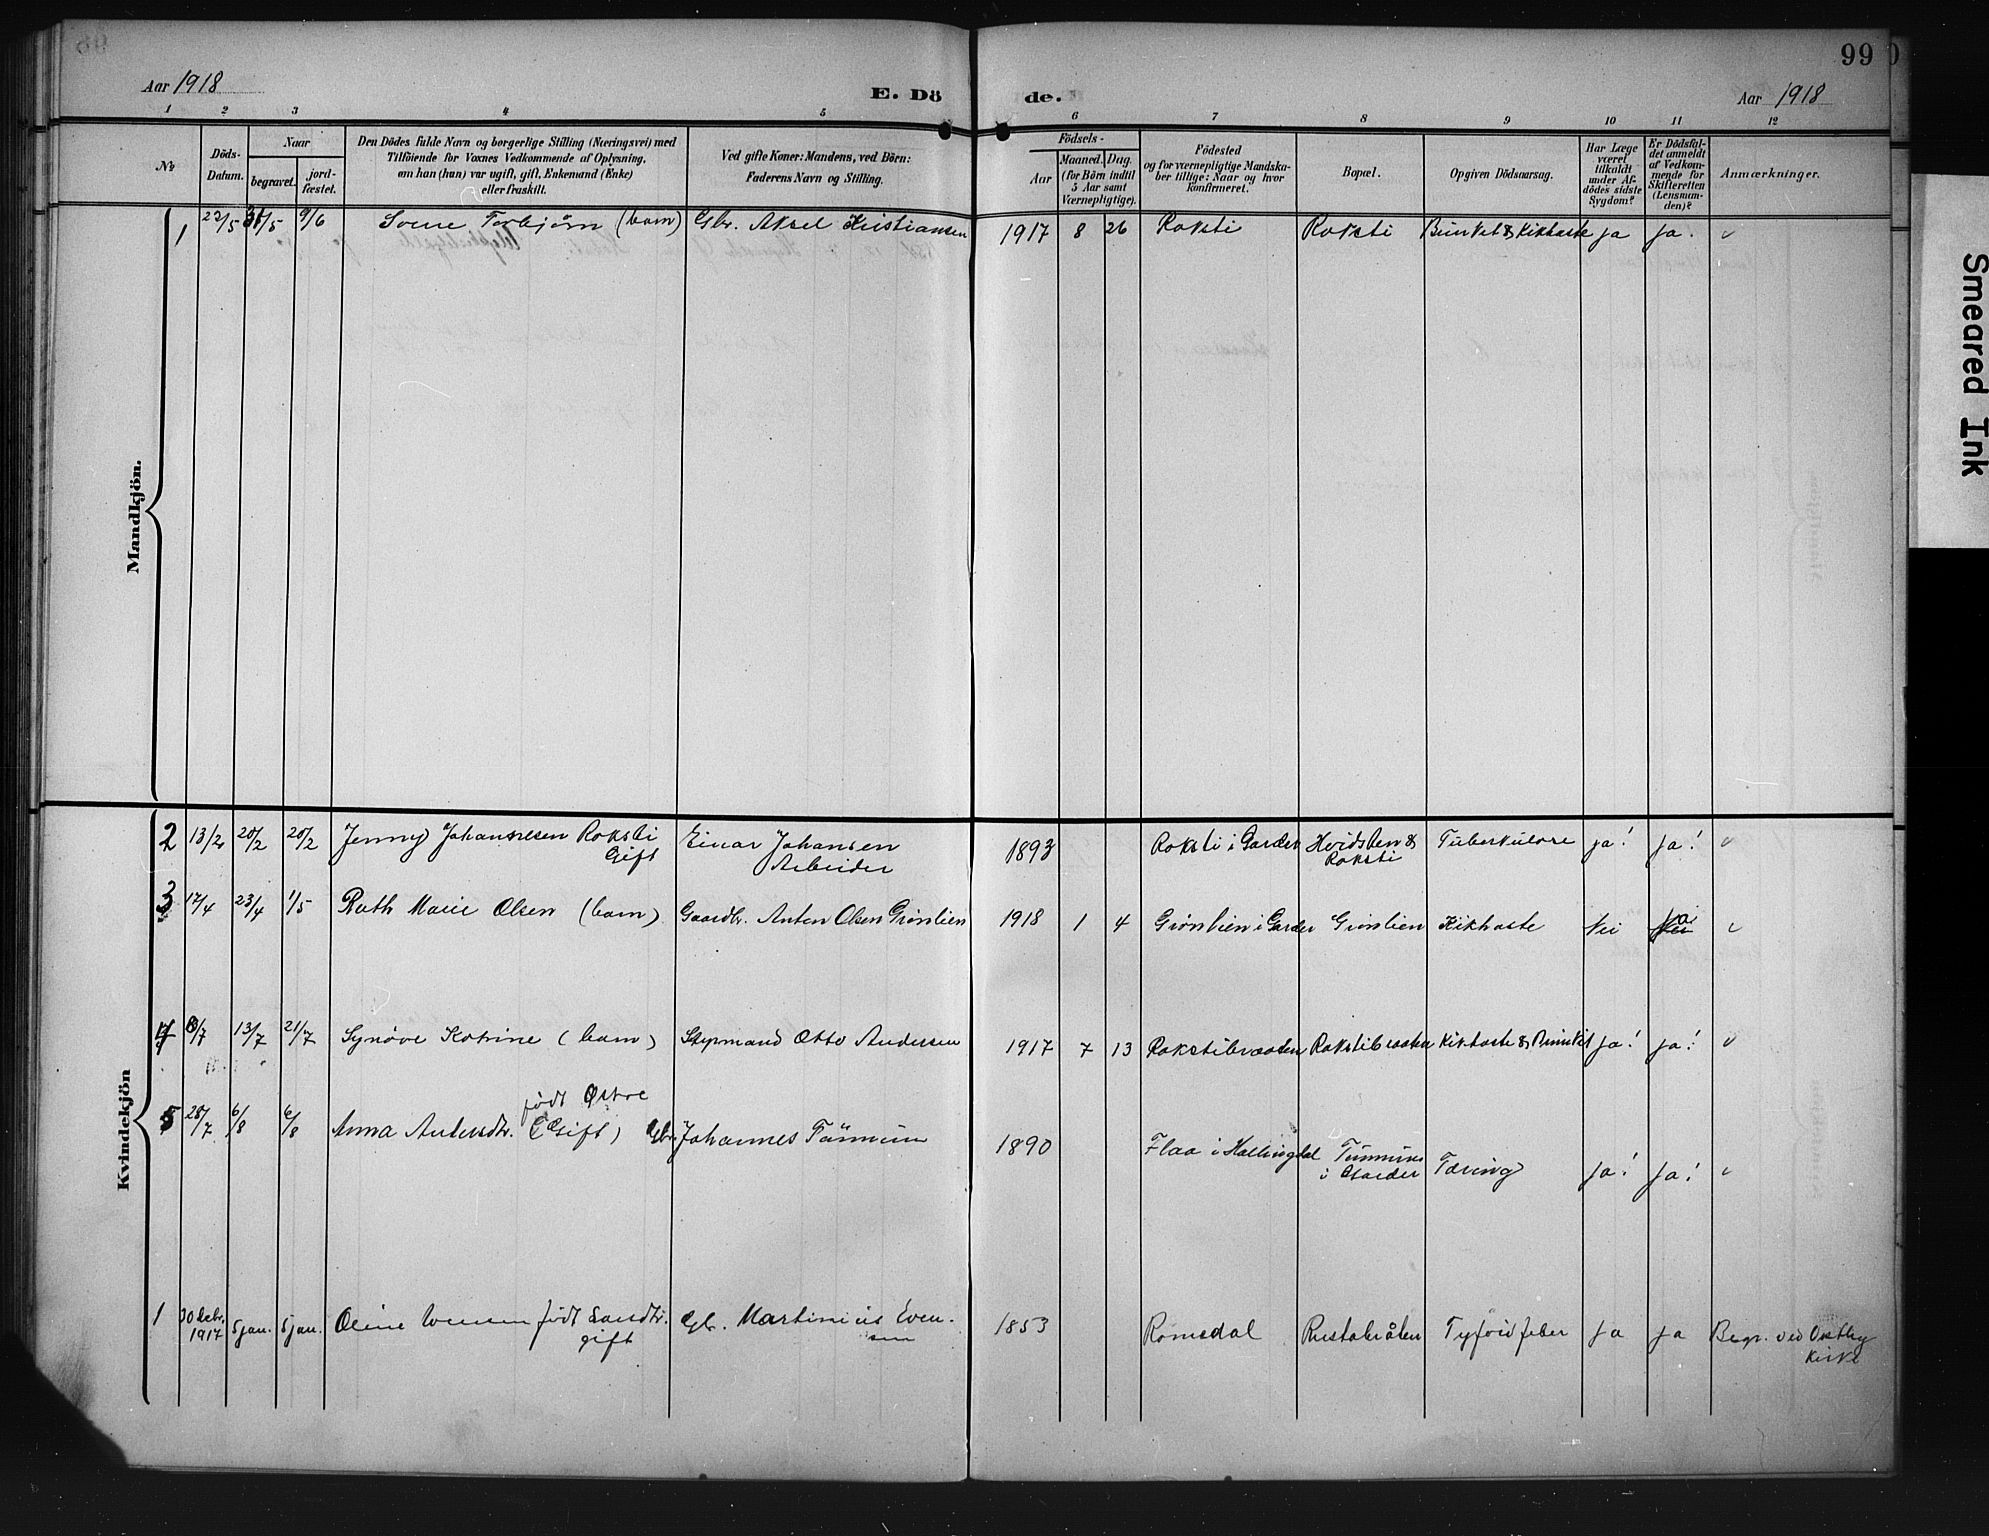 Aar 1918
E. Dö
de.
99
Aar 1918
1 2 3 4 5 6 7 8 9 10 11 12
No
Döds-
Datum.
Naar
begravet.
jord-
fæstet.
Den Dödes fulde Navn og borgerlige Stilling (Næringsvei) med
Tilföiende for Voxnes Vedkommende af Oplysning,
om han (hun) var ugift, gift, Enkemand (Enke)
eller fraskilt.
Ved gifte Koner: Mandens, ved Börn:
Faderens Navn og Stilling.
Födsels-
Aar
Maaned. Dag.
(for Börn indtil
5 Aar samt
Værnepligtige).
Födested
og for værnepligtige Mandska-
ber tillige: Naar og hvor
Konfirmeret.
Bopæl.
Opgiven Dödsaarsag.
Har Læge
været
tilkaldt
under Af-
dödes sidste
Sygdom?
Er Dödsfal-
det anmeldt
af Vedkom-
mende for
Skifteretten
(Lensman-
den)?
Anmærkninger.
Mandkjön.
1 22/5 31/5 9/6 Torbjørn (barn) Gbr. Aksel Kristiansen 1917 8 26 Roksti Roksti & Kikhoste ja ja.
Kvindekjön
2 13/2 20/2 20/2 Jenny Johannesen Roksti Einar Johansen 1893 Roksti i Garder Hvidsten & Tuberkulose ja! ja!
Gift Arbeider Roksti
3 17/4 23/4 1/5 Ruth Marie Olsen (barn) Gaardbr. Anton Olsen Grønlien 1918 1 4 Grønlien i Garder Grønlien Kikhoste Nei Nei ja
4 8/7 13/7 21/7 Synøve Katrine (barn) Otto Andersen 1917 7 13 Rokstibraaten Rokstibraaten Kikhoste & ja! ja!
født Østre
5 28/7 6/8 6/8 Anna Andersdtr. (Gift) Gbr. Johannes 1890 Flaa i Hallingdal
i Garder Tæring ja! ja!
1 30 Debr. 5 jan. 5 jan. Oline Evensen født Gbr. Martinius Even- 1853 Romsdal Rustabråten Tyfoid feber ja ja Begr. ved Vestby
1917 gift sen Kirke
Smeared Ink